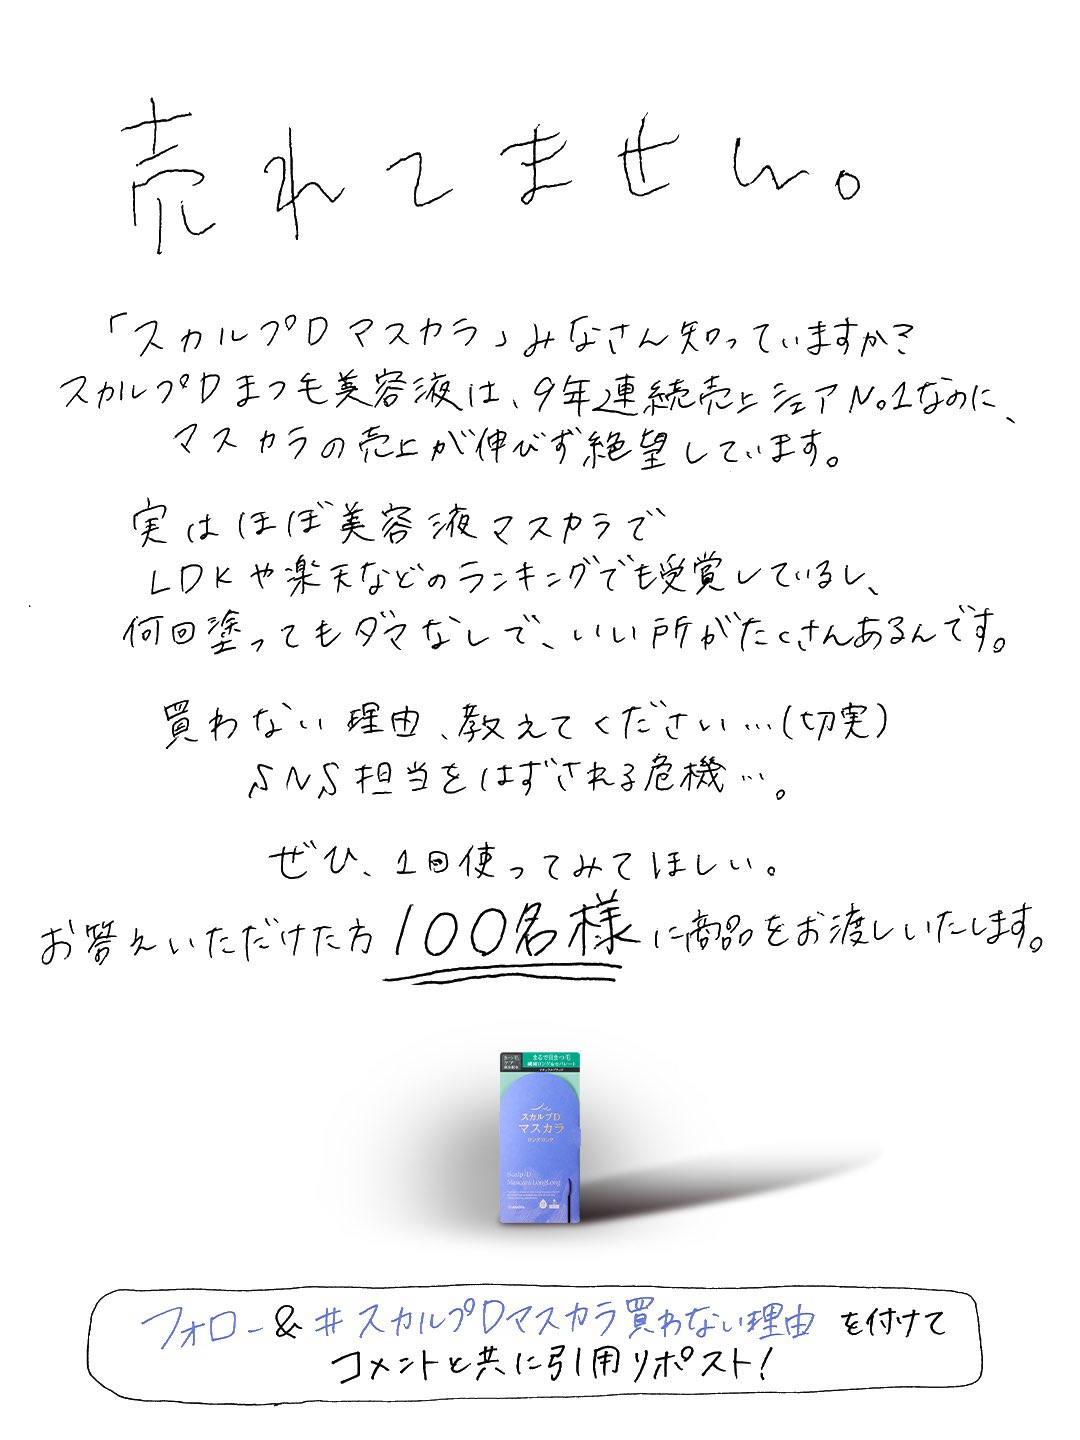 売れてません。
「スカルプDマスカラ」みなさん知っていますか？
スカルプDまつ毛美容液は、9年連続売上シェアNo.1なのに、
マスカラの売上が伸びず絶望しています。
実はほぼ美容液マスカラで
LDKや楽天などのランキングでも受賞しているし、
何回塗ってもダマなしで、いい所がたくさんあるんです。
買わない理由、教えてください…(切実)
SNS担当をはずされる危機…。
ぜひ、1回使ってみてほしい。
お答えいただけた方100名様に商品をお渡しいたします。
まつ毛
ケア
まるで自まつ毛
繊細ロング&セパレート
ナチュラルブラック
スカルプD
マスカラ
ロングロング
Scalp-D
Mascara LongLong
フォロー&#スカルプDマスカラ買わない理由 を付けて
コメントと共に引用リポスト!